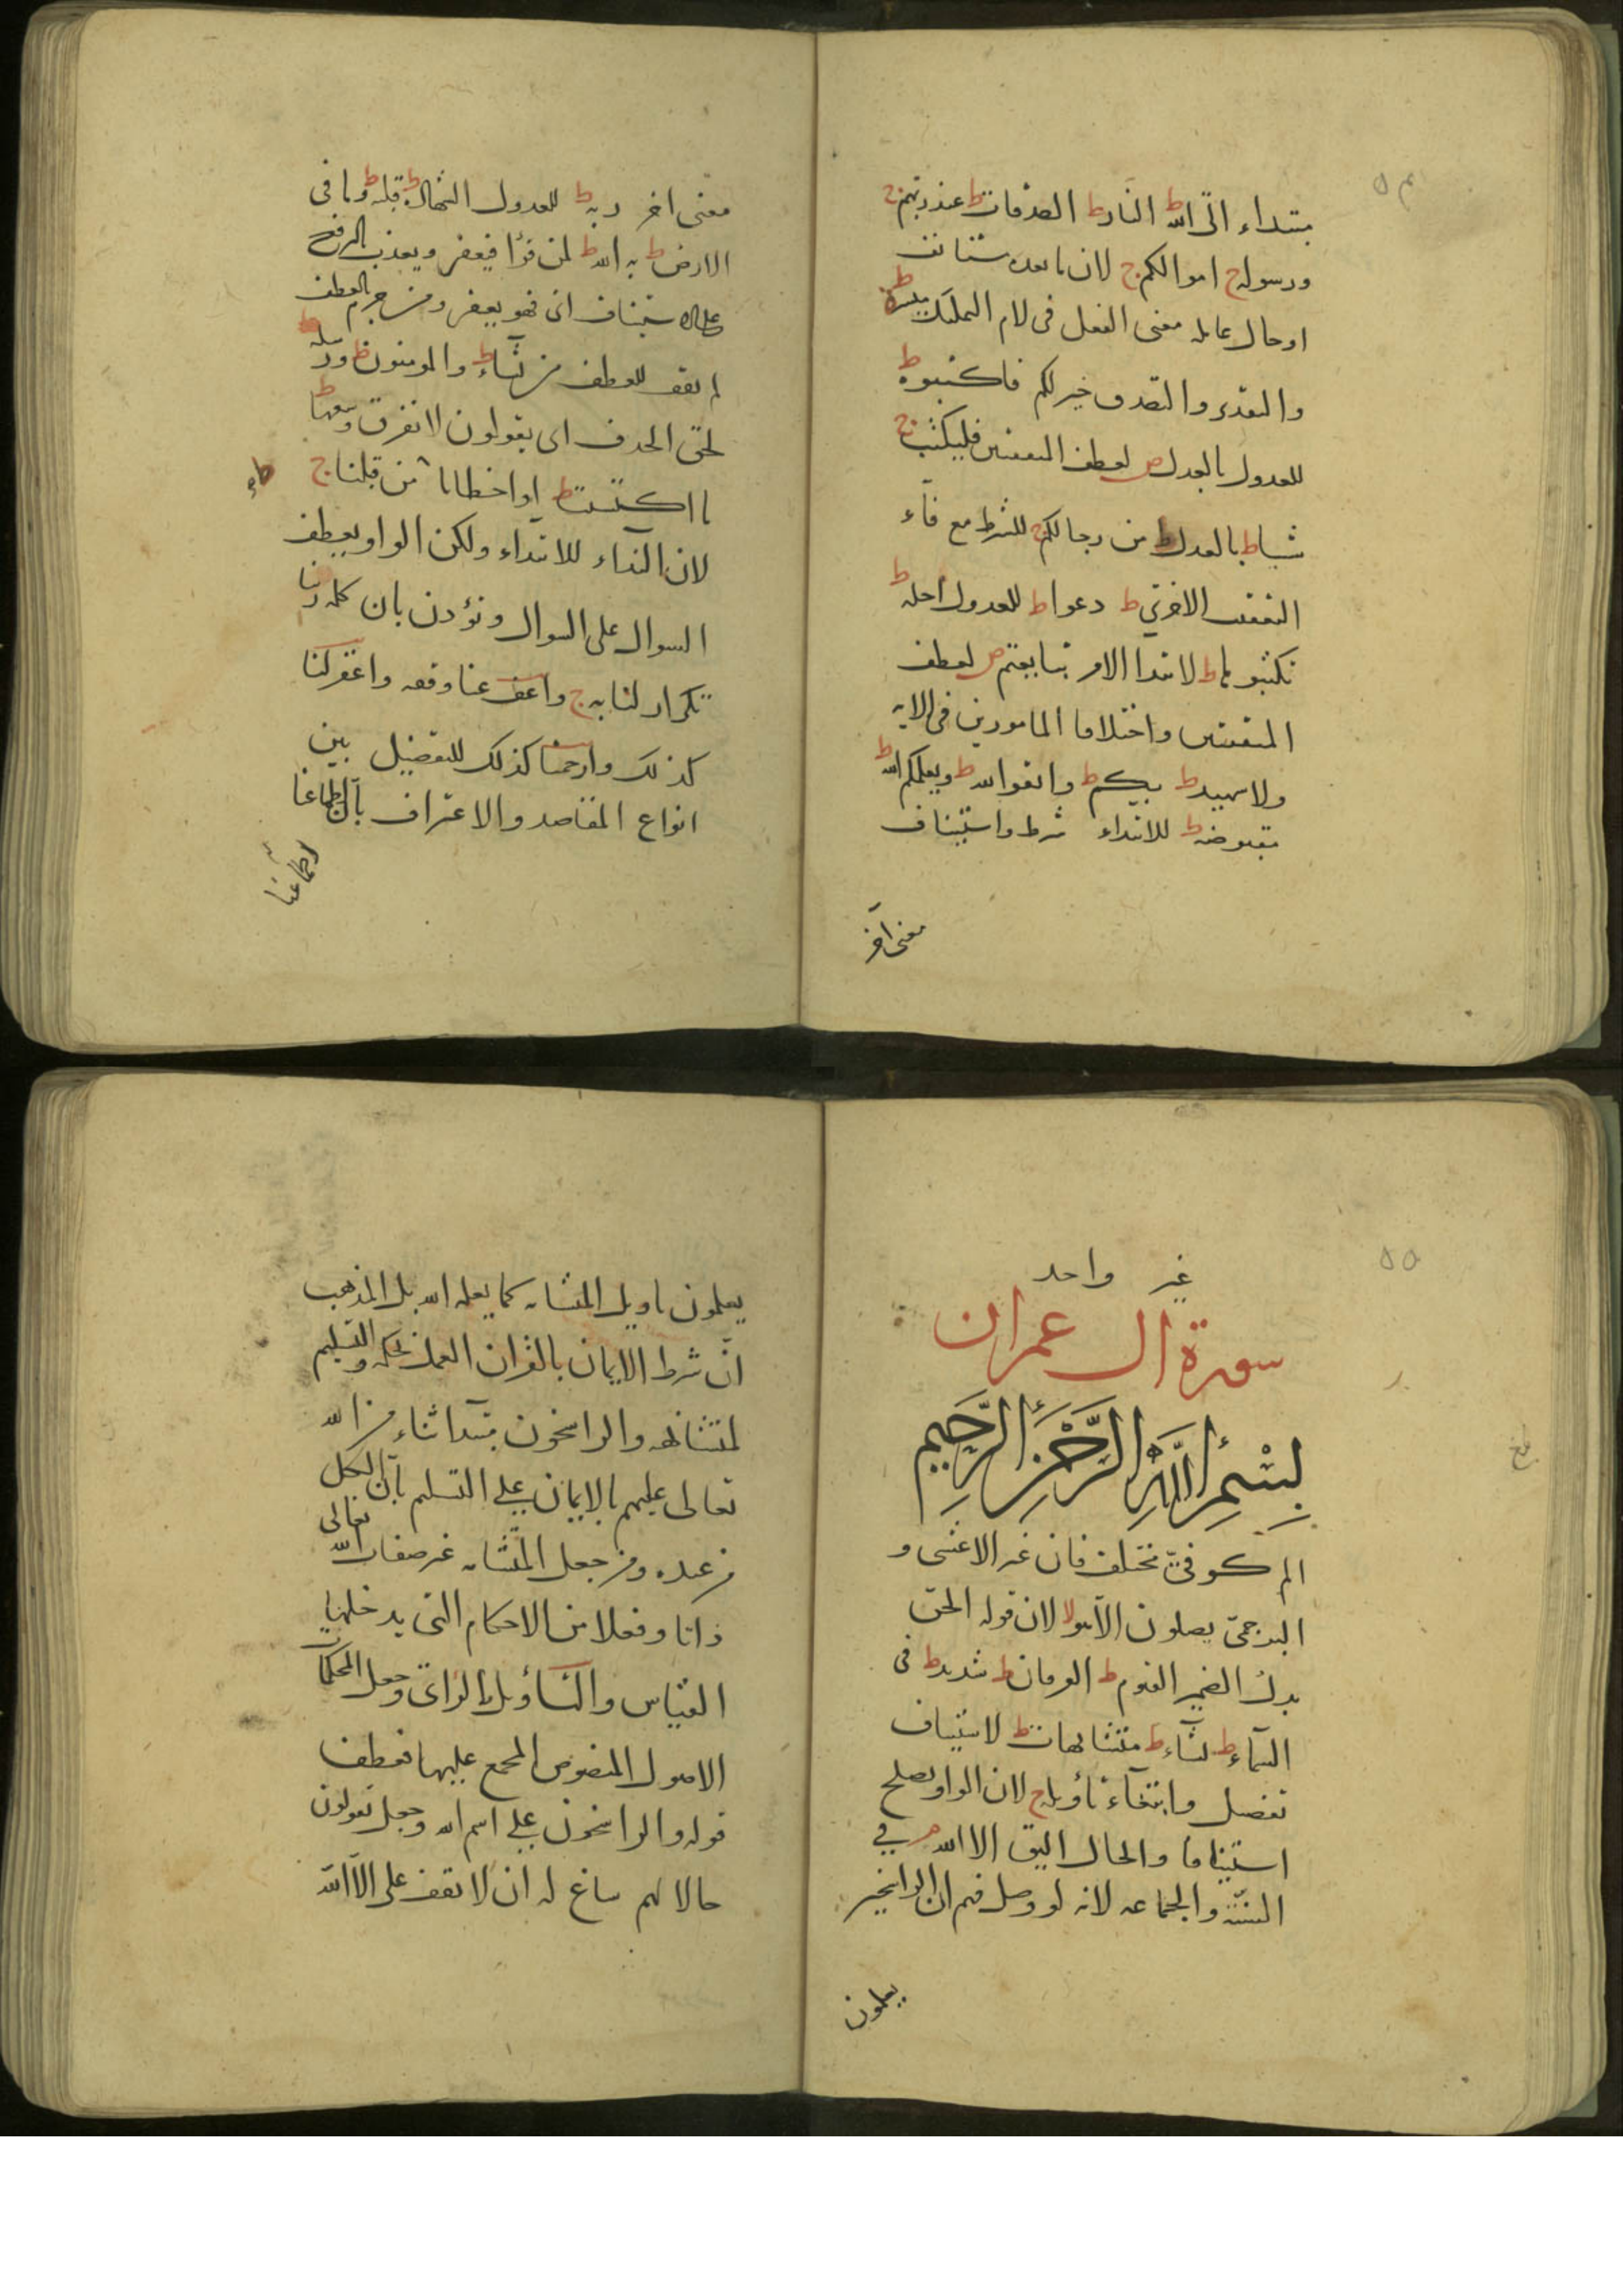 ٥٤
مبتداء الى الله ط النار ط الصدقات ط عند ربهم ج
ورسوله ج اموالكم ج لان ما بعده مستانف
او حال عامله معنى الفعل فى لام التمليك ميسرة ط
والتقدير والتصدق خير لكم فاكتبوه ط
للعدول بالعدل ص لعطف المتفقتين فليكتب ج
شيا ط بالعدل ط من رجالكم ج للشرط مع فآء
التعقيب الاخرى ط دعوا ط للعدول اجله ط
تكتبوها ط لابتدا الامر تبايعتم ص لعطف
المتفقتين واختلاف المامورين فى الايه
ولا شهيد ط بكم ط واتقوا الله ط ويعلمكم الله ط
مقبوضه ط للابتداء شرط واستيناف
معنى آخر
معنى اخر ربه ط للعدول الشهادة ط قلبه ط وما فى
الارض ط به الله ط لمن قرأ فيغفر ويعذب بالرفع
على الاستيناف اى فهو يغفر ومن جزم بالعطف
لم يقف للعطف من يشاء ط والمومنون ط ورسله ط
لحق الحذف اى يقولون لا نفرق وسعها ط
ما اكتسبت ط او اخطانا ج من قبلنا ج
لان الندآء للابتداء ولكن الواو يعطف
السوال على السوال ونؤذن بان كلمه ربنا
تكرار لنا به ج واعف عنا وقفه واغفر لنا
كذلك وارحمنا كذلك للتفضيل بين
انواع المقاصد والاعتراف بأن اطماعنا
اطماعنا
٥٥
غير واحد
سورة ال عمران
بسم الله الرحمن الرحيم
الم كوفىّ مختلف فان غير الاعشى و
البرجمىّ يصلون الّا هو لا لان قوله الحى
بدل الضمير القيوم ط الفرقان ط شديد ط فى
السّمآء ط يشآء ط متشابهات ط لاستيناف
تفصيل وابتغآء تأويله ج لان الواو يصلح
استينافا والحال اليق الا الله م فى
السنّة والجماعه لانه لو وصل فهم ان الراسخين
يعلمون
يعلمون تاويل المتشابه كما يعلمه الله بل المذهب
انّ شرط الايمان بالقرآن العمل بحكمه والتسليم
لمتشابهه والراسخون مبتدا ثناء من الله
تعالى عليهم بالايمان على التسليم بأنّ الكل
من عنده ومن جعل المتّشابه غير صفات الله تعالى
ذاتا وفعلا من الاحكام التى يدخلها
القياس والتأويل بالرأى وجعل المحكمات
الاصول المنصوص المجمع عليها فعطف
قوله والراسخون على اسم الله وجعل يقولون
حالا لهم ساغ له ان لا يقف على الّا الله